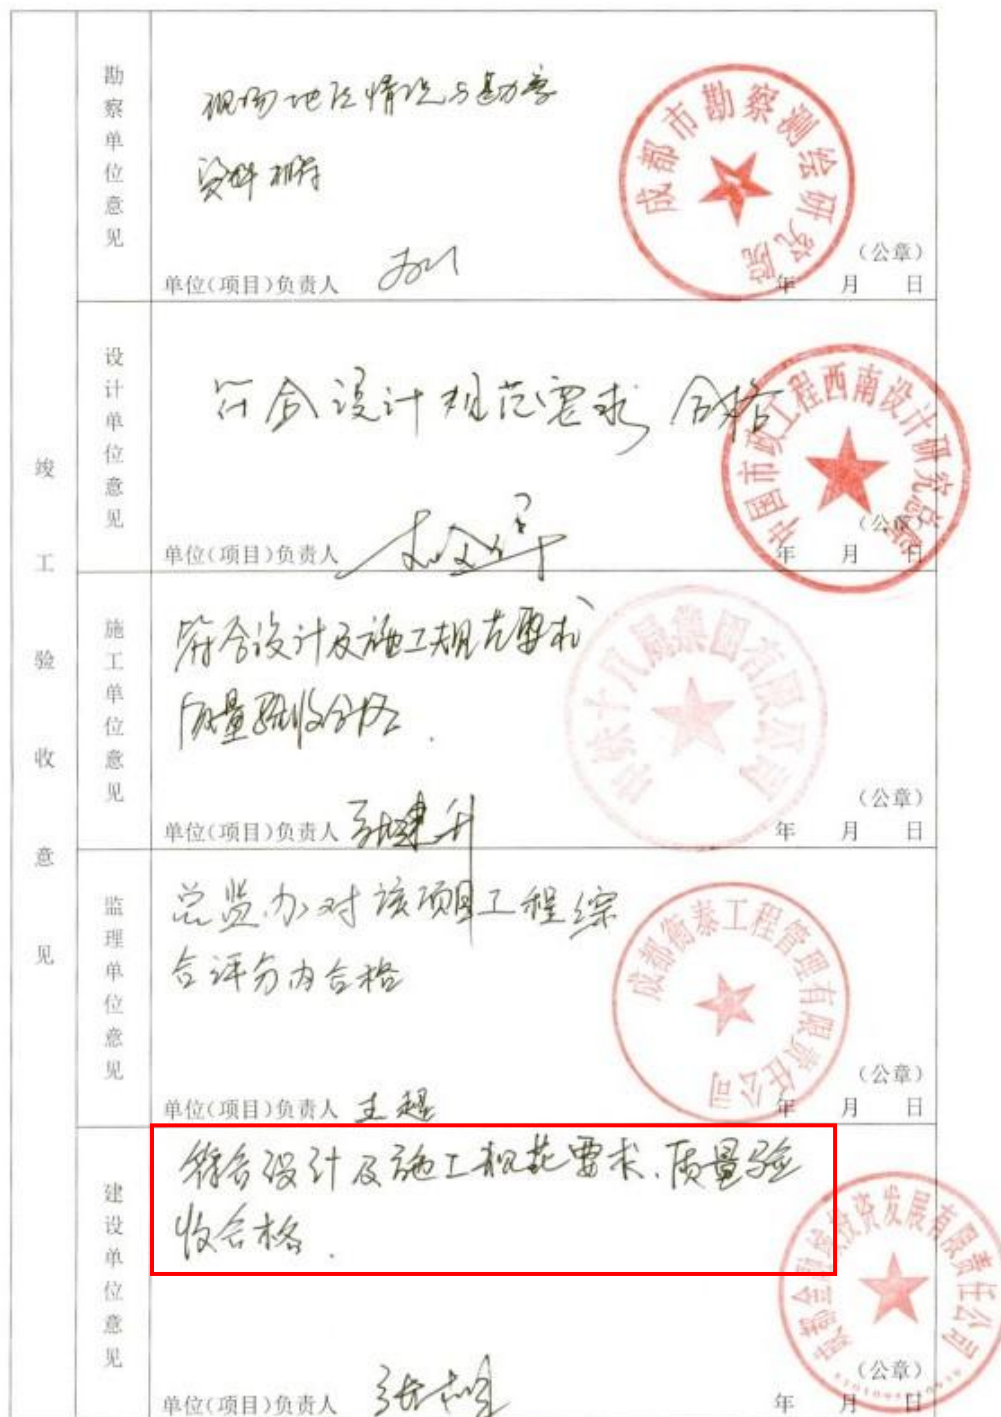 竣工验收意见
勘察单位意见
现场地质情况与勘察
资料相符
单位(项目)负责人
成都市勘察测绘研究院
(公章)
年 月 日
设计单位意见
符合设计规范要求 合格
单位(项目)负责人
中国市政工程西南设计研究总院
(公章)
年 月 日
施工单位意见
符合设计及施工规范要求
质量验收合格.
单位(项目)负责人 张建升
中铁十八局集团有限公司
(公章)
年 月 日
监理单位意见
总监办对该项目工程综
合评分为合格
单位(项目)负责人 王超
成都衡泰工程管理有限责任公司
(公章)
年 月 日
建设单位意见
符合设计及施工规范要求.质量验
收合格.
单位(项目)负责人
投资发展有限责任公司
(公章)
年 月 日